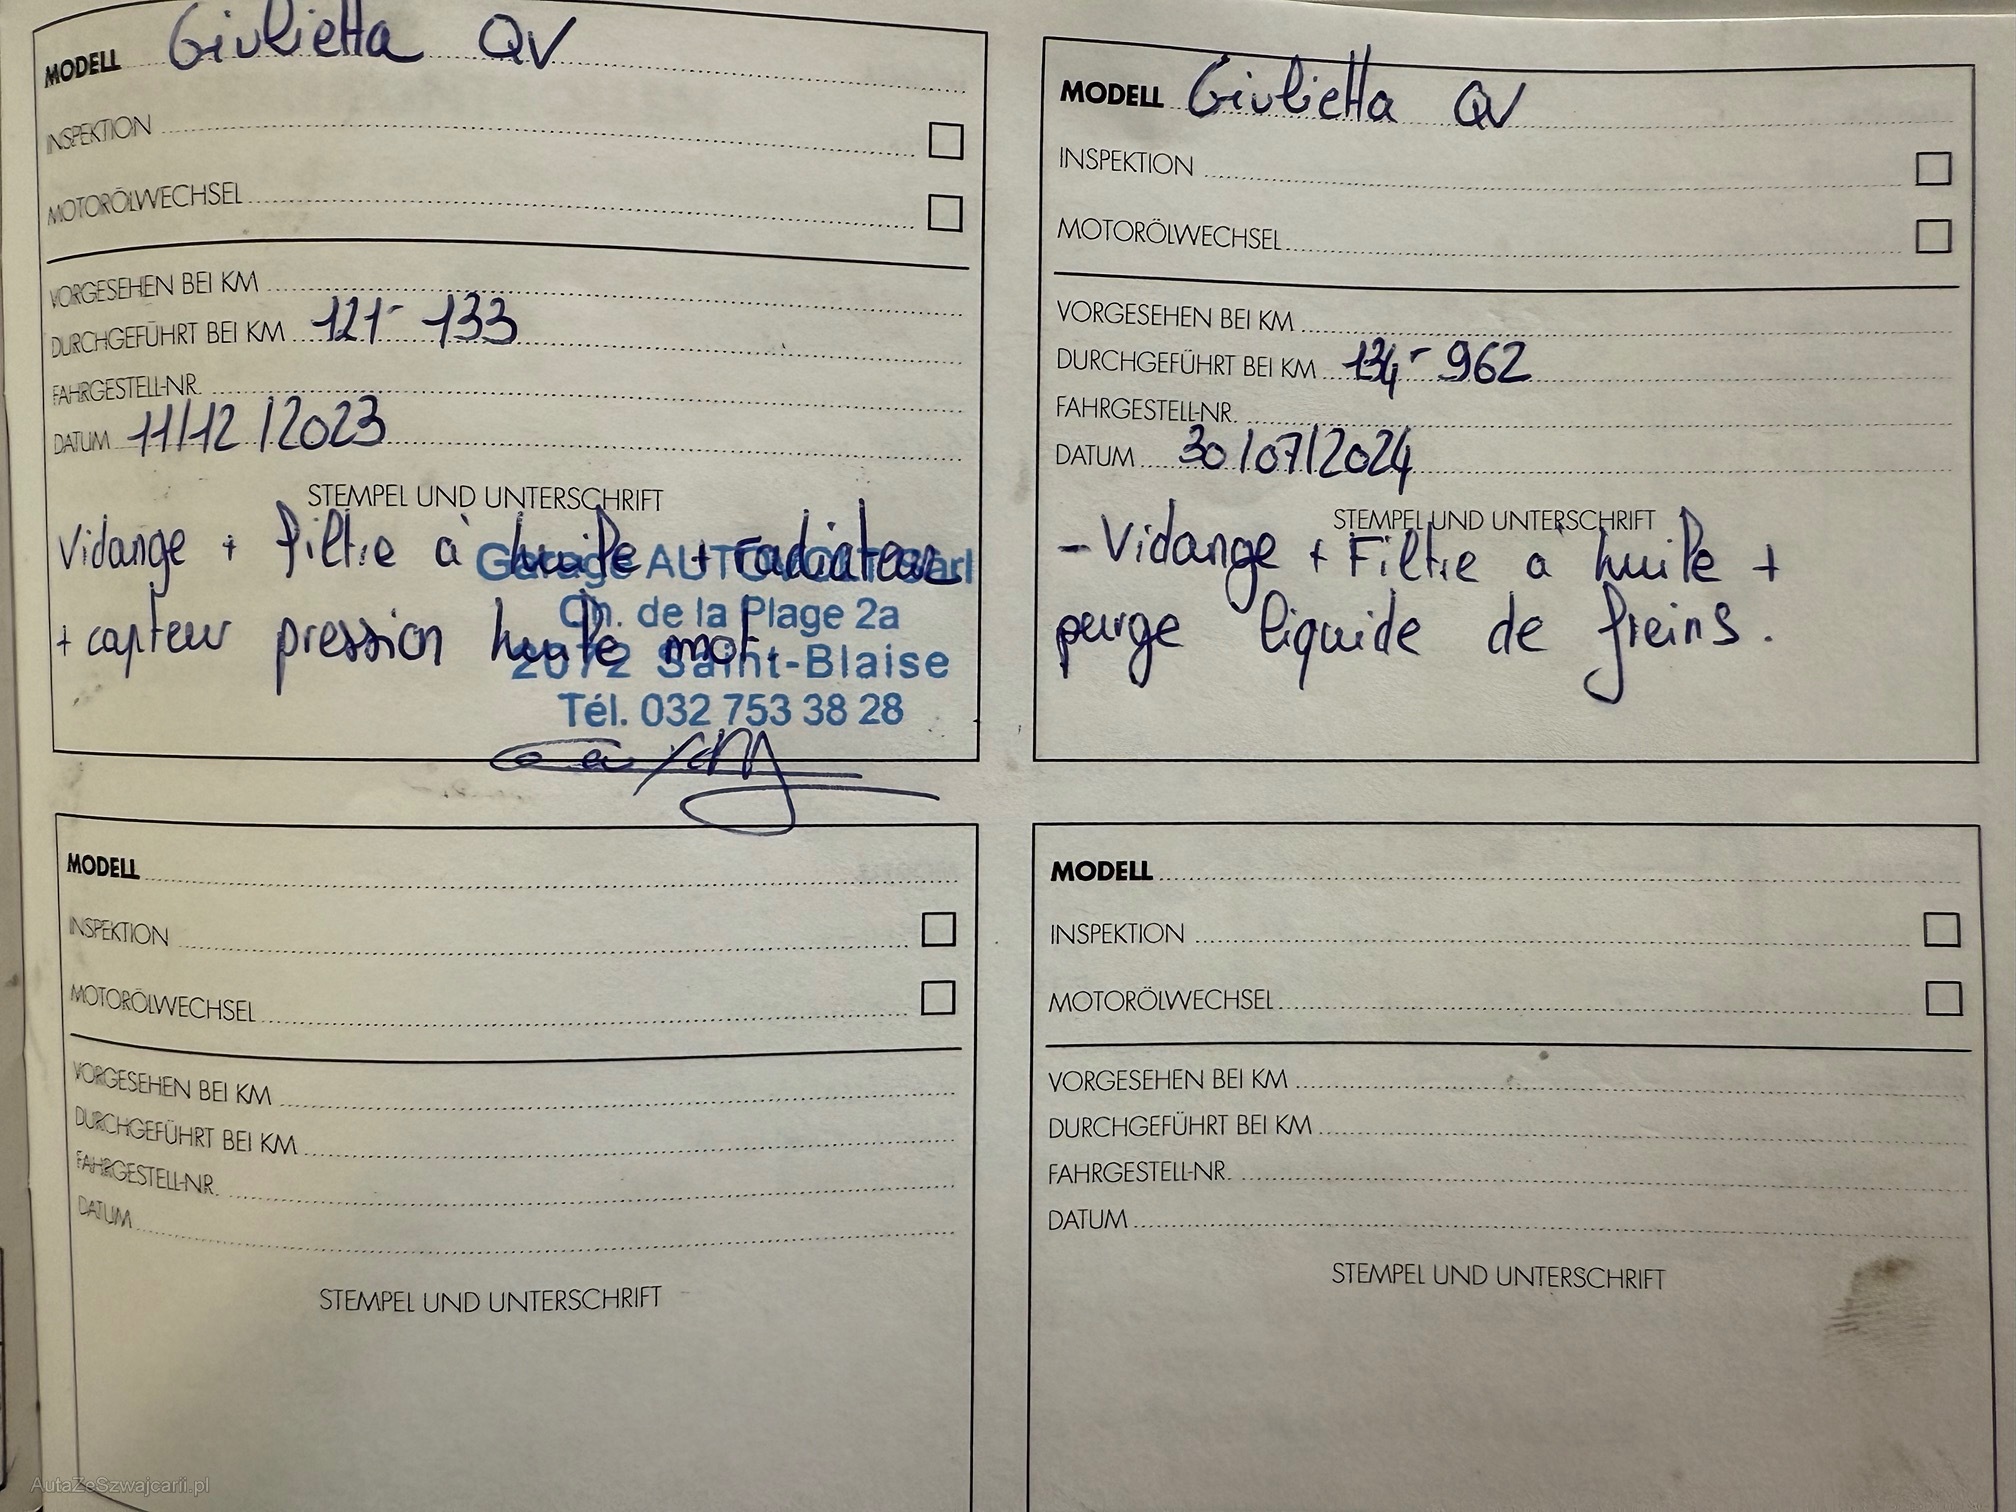 MODELL Giulietta QV
INSPEKTION
MOTORÖLWECHSEL
VORGESEHEN BEI KM
DURCHGEFÜHRT BEI KM 121-133
FAHRGESTELL-NR.
DATUM 11/12/2023
STEMPEL UND UNTERSCHRIFT
Vidange + filtre à huile + radiateur
+ capteur pression huile mot.
Garage Sarl
Ch. de la Plage 2a
2072 Saint-Blaise
Tél. 032 753 38 28
MODELL Giulietta QV
INSPEKTION
MOTORÖLWECHSEL
VORGESEHEN BEI KM
DURCHGEFÜHRT BEI KM 134-962
FAHRGESTELL-NR.
DATUM 30/07/2024
STEMPEL UND UNTERSCHRIFT
- Vidange + Filtre à huile +
purge liquide de freins.
MODELL
INSPEKTION
MOTORÖLWECHSEL
VORGESEHEN BEI KM
DURCHGEFÜHRT BEI KM
FAHRGESTELL-NR.
DATUM
STEMPEL UND UNTERSCHRIFT
MODELL
INSPEKTION
MOTORÖLWECHSEL
VORGESEHEN BEI KM
DURCHGEFÜHRT BEI KM
FAHRGESTELL-NR.
DATUM
STEMPEL UND UNTERSCHRIFT
AutaZeSzwajcarii.pl